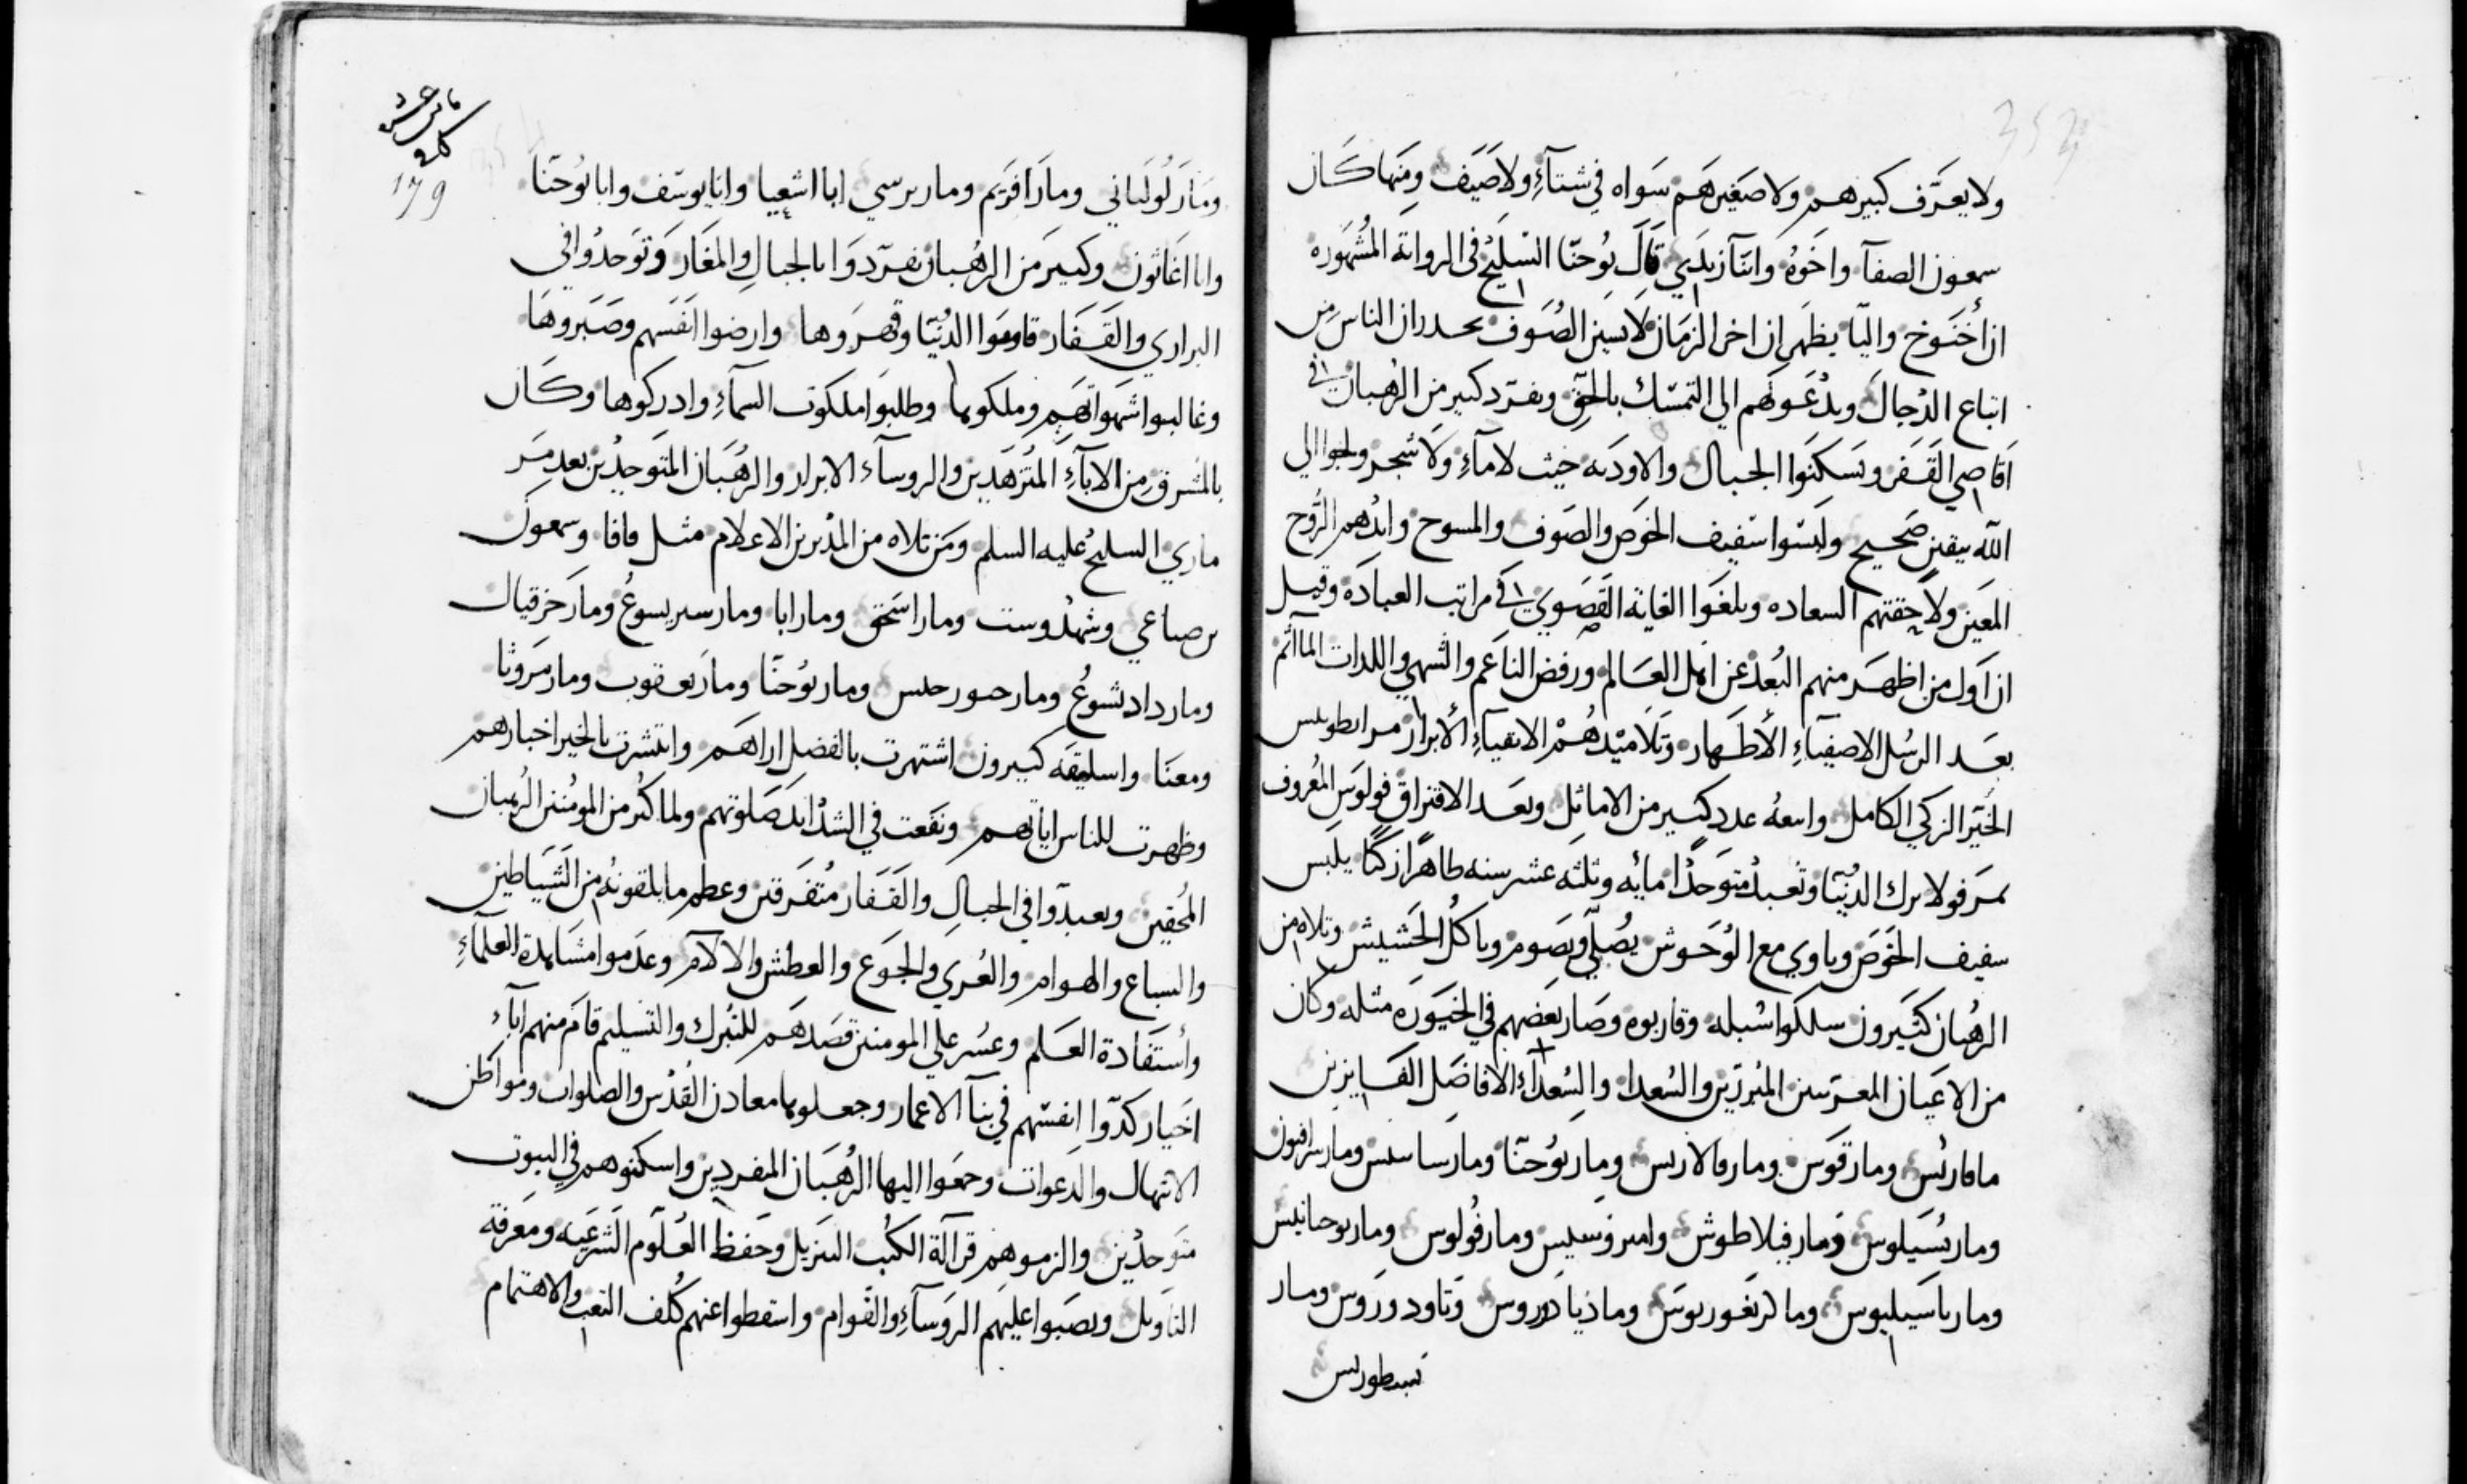 ولا يعرف كبيرهم ولا صغيرهم سواه في شتآءٍ ولا صيف ومنها كان
سمعون الصفآ واخوه وابنا زبدي قال يوحنا السليح في الرواية المشهوره
ان أخنوخ واليا يظهران اخر الزمان لابسين الصوف يحدران الناس من
اتباع الدجال ويدعوهم الي التمسك بالحق وتفرد كبير من الرهبان في
اقاصي القفر وتسكنوا الجبال والاوديه حيث لا مآءٍ ولا شجر ولجوا الي
الله بيقين صحيح ولبسوا سفيف الخوص والصوف والمسوح وايدهم الروح
المعين ولاحقتهم السعاده وبلغوا الغاية القصوي في مراتب العباده وقيل
ان اول من اظهر منهم البعد عن اهل العالم ورفض الناعم والشهي واللدات المآثم
بعد الرسل الاصفيآءِ الأطهار وتلاميدهم الاتقيآءِ الأبرار مر انطونيس
الخير الزكي الكامل واتبعه عدد كبير من الاماثل وبعد الافتراق فولوس المعروف
بمر فولا ترك الدنيا وتعبد متوحدًا مايه وثلثه عشر سنه طاهرًا زكيًا يلبس
سفيف الخوص وياوي مع الوحوش يصلي ويصوم وياكل الحشيش وتلاه من
الرهبان كثيرون سلكوا سبله وقاربوه وصار بعضهم في الخيوره مثله وكان
من الاعيان المبرزين والسعدا والسعدآءِ الافاضل الفايزين
مافاريس ومارقوس ومار يوحنا ومار سرافيون
ومار بسيلوس ومار فيلاطوش وامبروسيس ومار فولوس ومار يوحانيس
ومار باسيليوس ومار ديادوروس وتاودوروس ومار
نسطوريس
ثامن عشر
179
ومار لولياني ومار افريم ومار برسي ابا اشعيا وابا يوسف وابا يوحنا
وابا اغاثون وكبير من الرهبان تفردوا بالجبال والمغار وتوحدوا في
البراري والقفار قاوموا الدنيا وقهروها وارضوا انفسهم وصبروها
وغالبوا شهواتهم وملكوها وطلبوا ملكوت السمآءِ وادركوها وكان
بالمشرق من الابآءِ المتزهدين والروسآء الابرار والرهبان المتوحدين بعد مر
ماري السليح عليه السلم ومن تلاه من المدبرين الاعلام مثل فافا وسمعون
برصباعي وشهدوست ومار اسحق ومار ابا ومار سبريسوع ومار حزقيال
ومار داديشوع ومار يوحنا ومار يعقوب ومار مروثا
ومعنا واسليقه كبيرون اشتهرت بالفضل اراهم وانتشرت بالخير اخبارهم
وظهرت للناس اياتهم ونفعت في الشدايد صلوتهم ولما كثر من المومنين الرهبان
المحقين وتعبدوا في الجبال والقفار متفرقين وعظم ما يلقونه من الشياطين
والسباع والهوام والعري والجوع والعطش والالام وعدموا مشاهدة العلمآءِ
وأستفادة العلم وعسر علي المومنين قصدهم للتبرك والتسليم قام منهم ابآء
اخيار كدوا انفسهم في بنآ الاعمار وجعلوها معادن القدس والصلوات ومواطن
الابتهال والدعوات وجمعوا اليها الرهبان المفردين واسكنوهم في البيوت
متوحدين والزموهم قرآلة الكتب التنزيل وحفظ العلوم الشرعيه ومعرفة
التاويل ونصبوا عليهم الروسآءِ والقوام واسقطوا عنهم كلف التعب والاهتمام